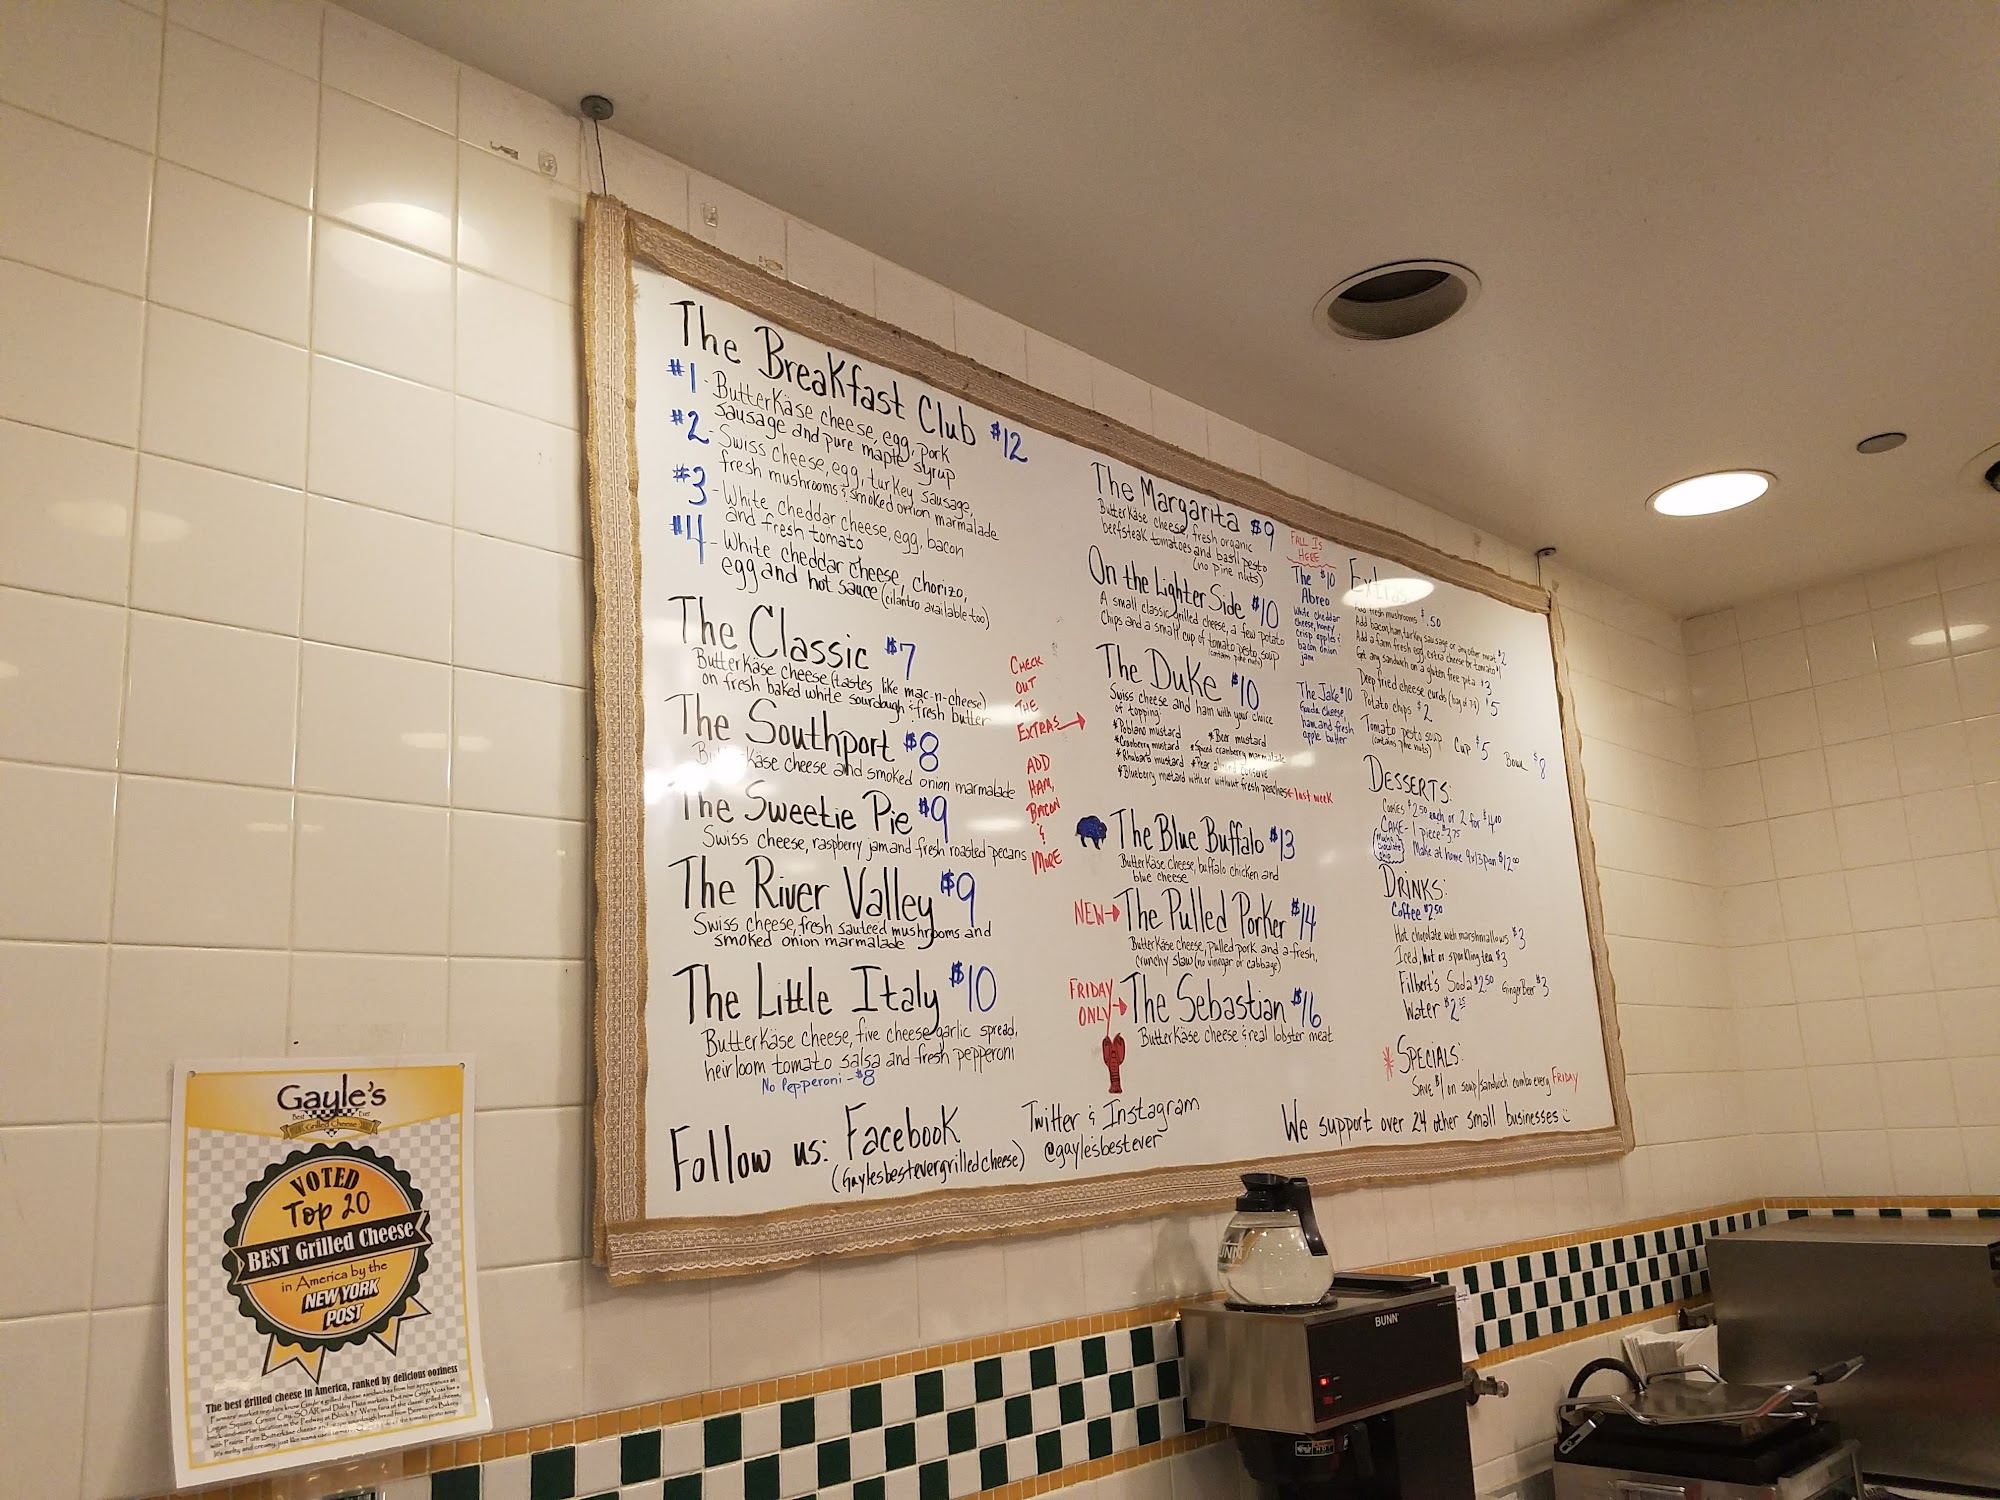 The Breakfast Club $12
#1 - ButterKäse cheese, egg, pork
sausage and pure maple syrup
#2 - Swiss cheese, egg, turkey sausage,
fresh mushrooms & smoked onion marmalade
#3 - White cheddar cheese, egg, bacon
and fresh tomato
#4 - White cheddar cheese, chorizo,
egg and hot sauce (cilantro available too)
The Classic $7
ButterKäse cheese (tastes like mac-n-cheese)
on fresh baked white sourdough & fresh butter
The Southport $8
käse cheese and smoked onion marmalade
The Sweetie Pie $9
Swiss cheese, raspberry jam and fresh roasted pecans
The River Valley $9
Swiss cheese, fresh sauteed mushrooms and
smoked onion marmalade
The Little Italy $10
ButterKäse cheese, five cheese garlic spread,
heirloom tomato salsa and fresh pepperoni
No Pepperoni - $8
CHECK
OUT
THE
EXTRAS →
ADD
HAM,
BACON
&
MORE
The Margarita $9
ButterKäse cheese, fresh organic
beefsteak tomatoes and basil pesto
(no pine nuts)
On the Lighter Side $10
A small classic grilled cheese, a few potato
Chips and a small cup of tomato pesto soup
(contains pine nuts)
The Duke $10
Swiss cheese and ham with your choice
of topping:
*Poblano mustard *Beer mustard
*Cranberry mustard *Spiced cranberry marmalade
*Rhubarb mustard *Pear
*Blueberry mustard with or without fresh peaches ← last week
The Blue Buffalo $13
ButterKäse cheese, buffalo chicken and
blue cheese
NEW → The Pulled Porker $14
ButterKäse cheese, pulled pork and a fresh,
crunchy slaw (no vinegar or cabbage)
FRIDAY
ONLY → The Sebastian $16
ButterKäse cheese & real lobster meat
FALL IS
HERE
The $10
Abreo
White cheddar
cheese, honey
crisp apples &
bacon onion
jam
The Jake $10
Gouda cheese,
ham and fresh
apple butter
Extras
Add fresh mushrooms $.50
Add bacon, ham, turkey sausage or any other meat $2
Add a farm fresh egg, extra cheese or tomato $1
Get any sandwich on a gluten free pita $3
Deep fried cheese curds (bag of 7-8) $5
Potato chips $2
Tomato pesto soup Cup $5 Bowl $8
(contains pine nuts)
DESSERTS:
Cookies $2.50 each or 2 for $4.00
CAKE - 1 piece $3.75
Make at home 9x13 pan $12.00
DRINKS:
Coffee $2.50
Hot chocolate with marshmallows $3
Iced, hot or sparkling tea $3
Filbert's Soda $2.50 Ginger Beer $3
Water $2.25
* SPECIALS:
SAVE $1 on soup/sandwich combo every FRIDAY
Follow us: Facebook
(Gaylesbestevergrilledcheese)
Twitter & Instagram
@gayle'sbestever
We support over 24 other small businesses
Gayle's
Best Ever
Grilled Cheese
VOTED
Top 20
BEST Grilled Cheese
in America by the
NEW YORK
POST
The best grilled cheese in America, ranked by delicious ooziness
BUNN
BUNN